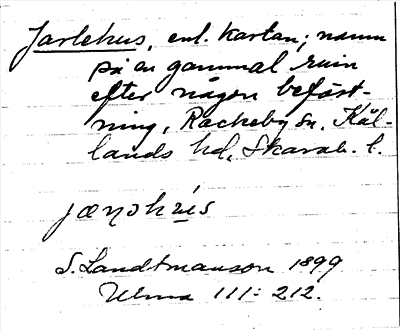 Jarlehus, enl. kartan; namn
på en gammal ruin
efter någon befäst-
ning, Rackeby sn, Kål-
lands hd, Skarab. l.
S. Landtmanson 1899
Ulma 111: 212.